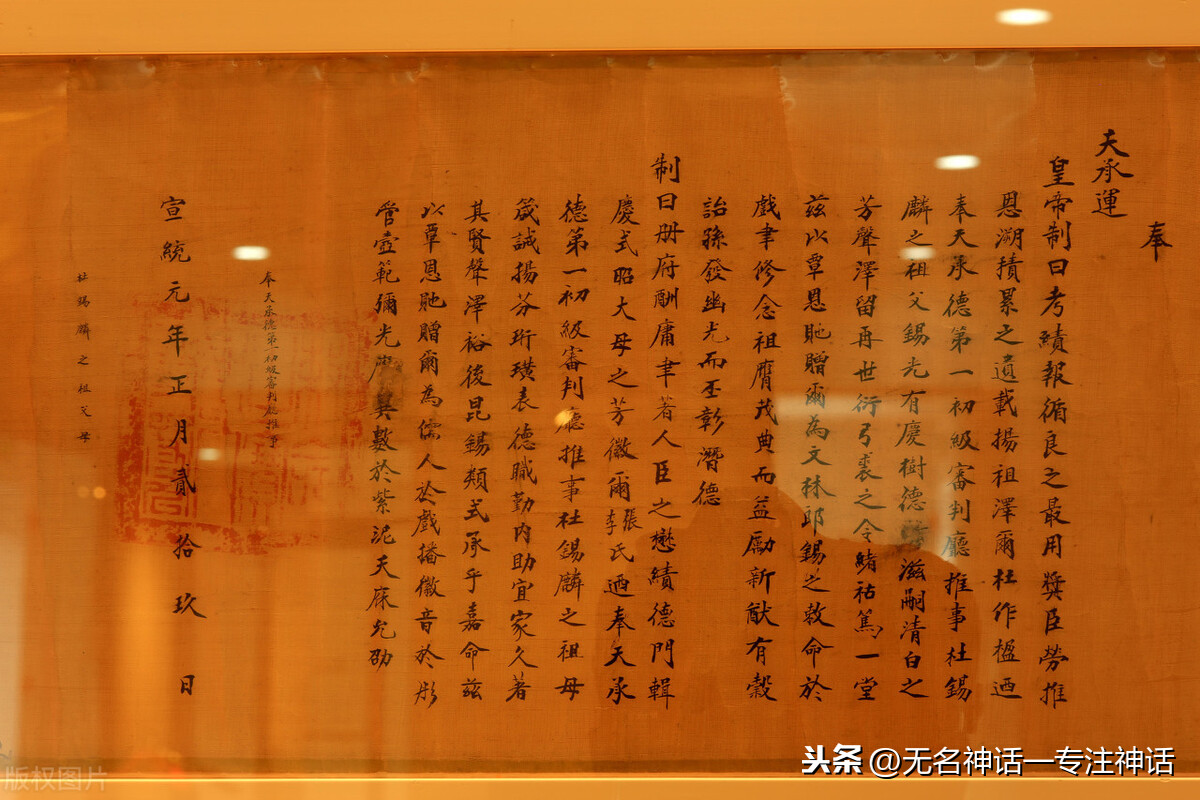 奉
天承運
皇帝制曰考績報循良之最用獎臣勞推
恩溯積累之遺載揚祖澤爾杜作楹迺
奉天承德第一初級審判廳推事杜錫
麟之祖父錫光有慶樹德滋嗣清白之
芳聲澤留再世衍弓裘之令緒祜篤一堂
茲以覃恩貤贈爾為文林郎錫之敕命於
戲聿修念祖膺茂典而益勵新猷有穀
詒孫發幽光而丕彰潛德
制曰册府酬庸聿著人臣之懋績德門輯
慶式昭大母之芳徽爾張李氏迺奉天承
德第一初級審判廳推事杜錫麟之祖母
箴誡揚芬珩璜表德職勤內助宜家久著
其賢聲澤裕後昆錫類式承乎嘉命茲
以覃恩貤贈爾為儒人於戲播徽音於彤
管壼範彌光異數於紫泥天庥允劭
奉天承德第一初級審判廳推事
宣統元年正月貳拾玖日
杜錫麟之祖父母
头条 @无名神话一专注神话
版权图片